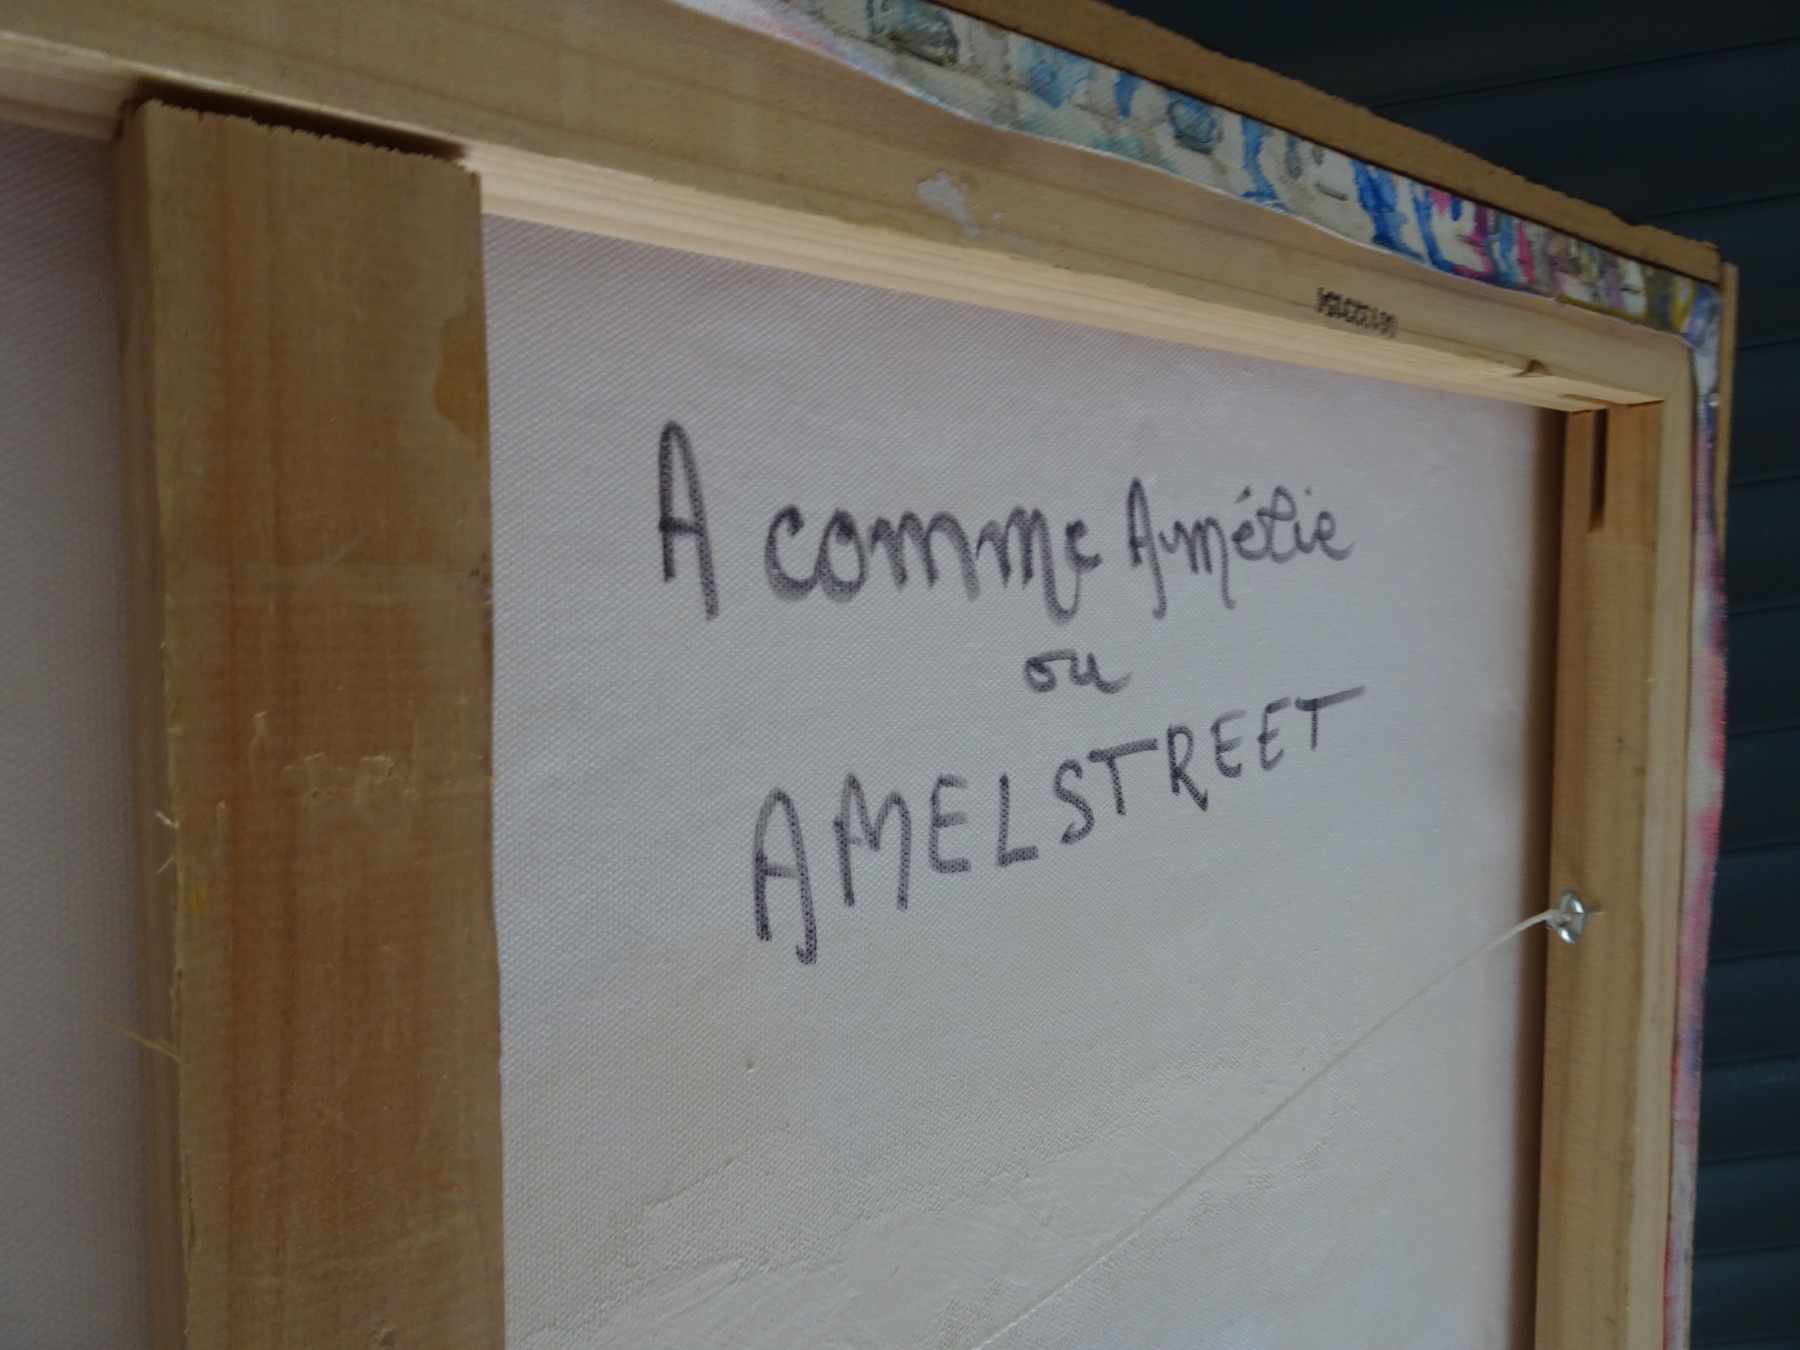 A comme Amélie
ou
AMELSTREET